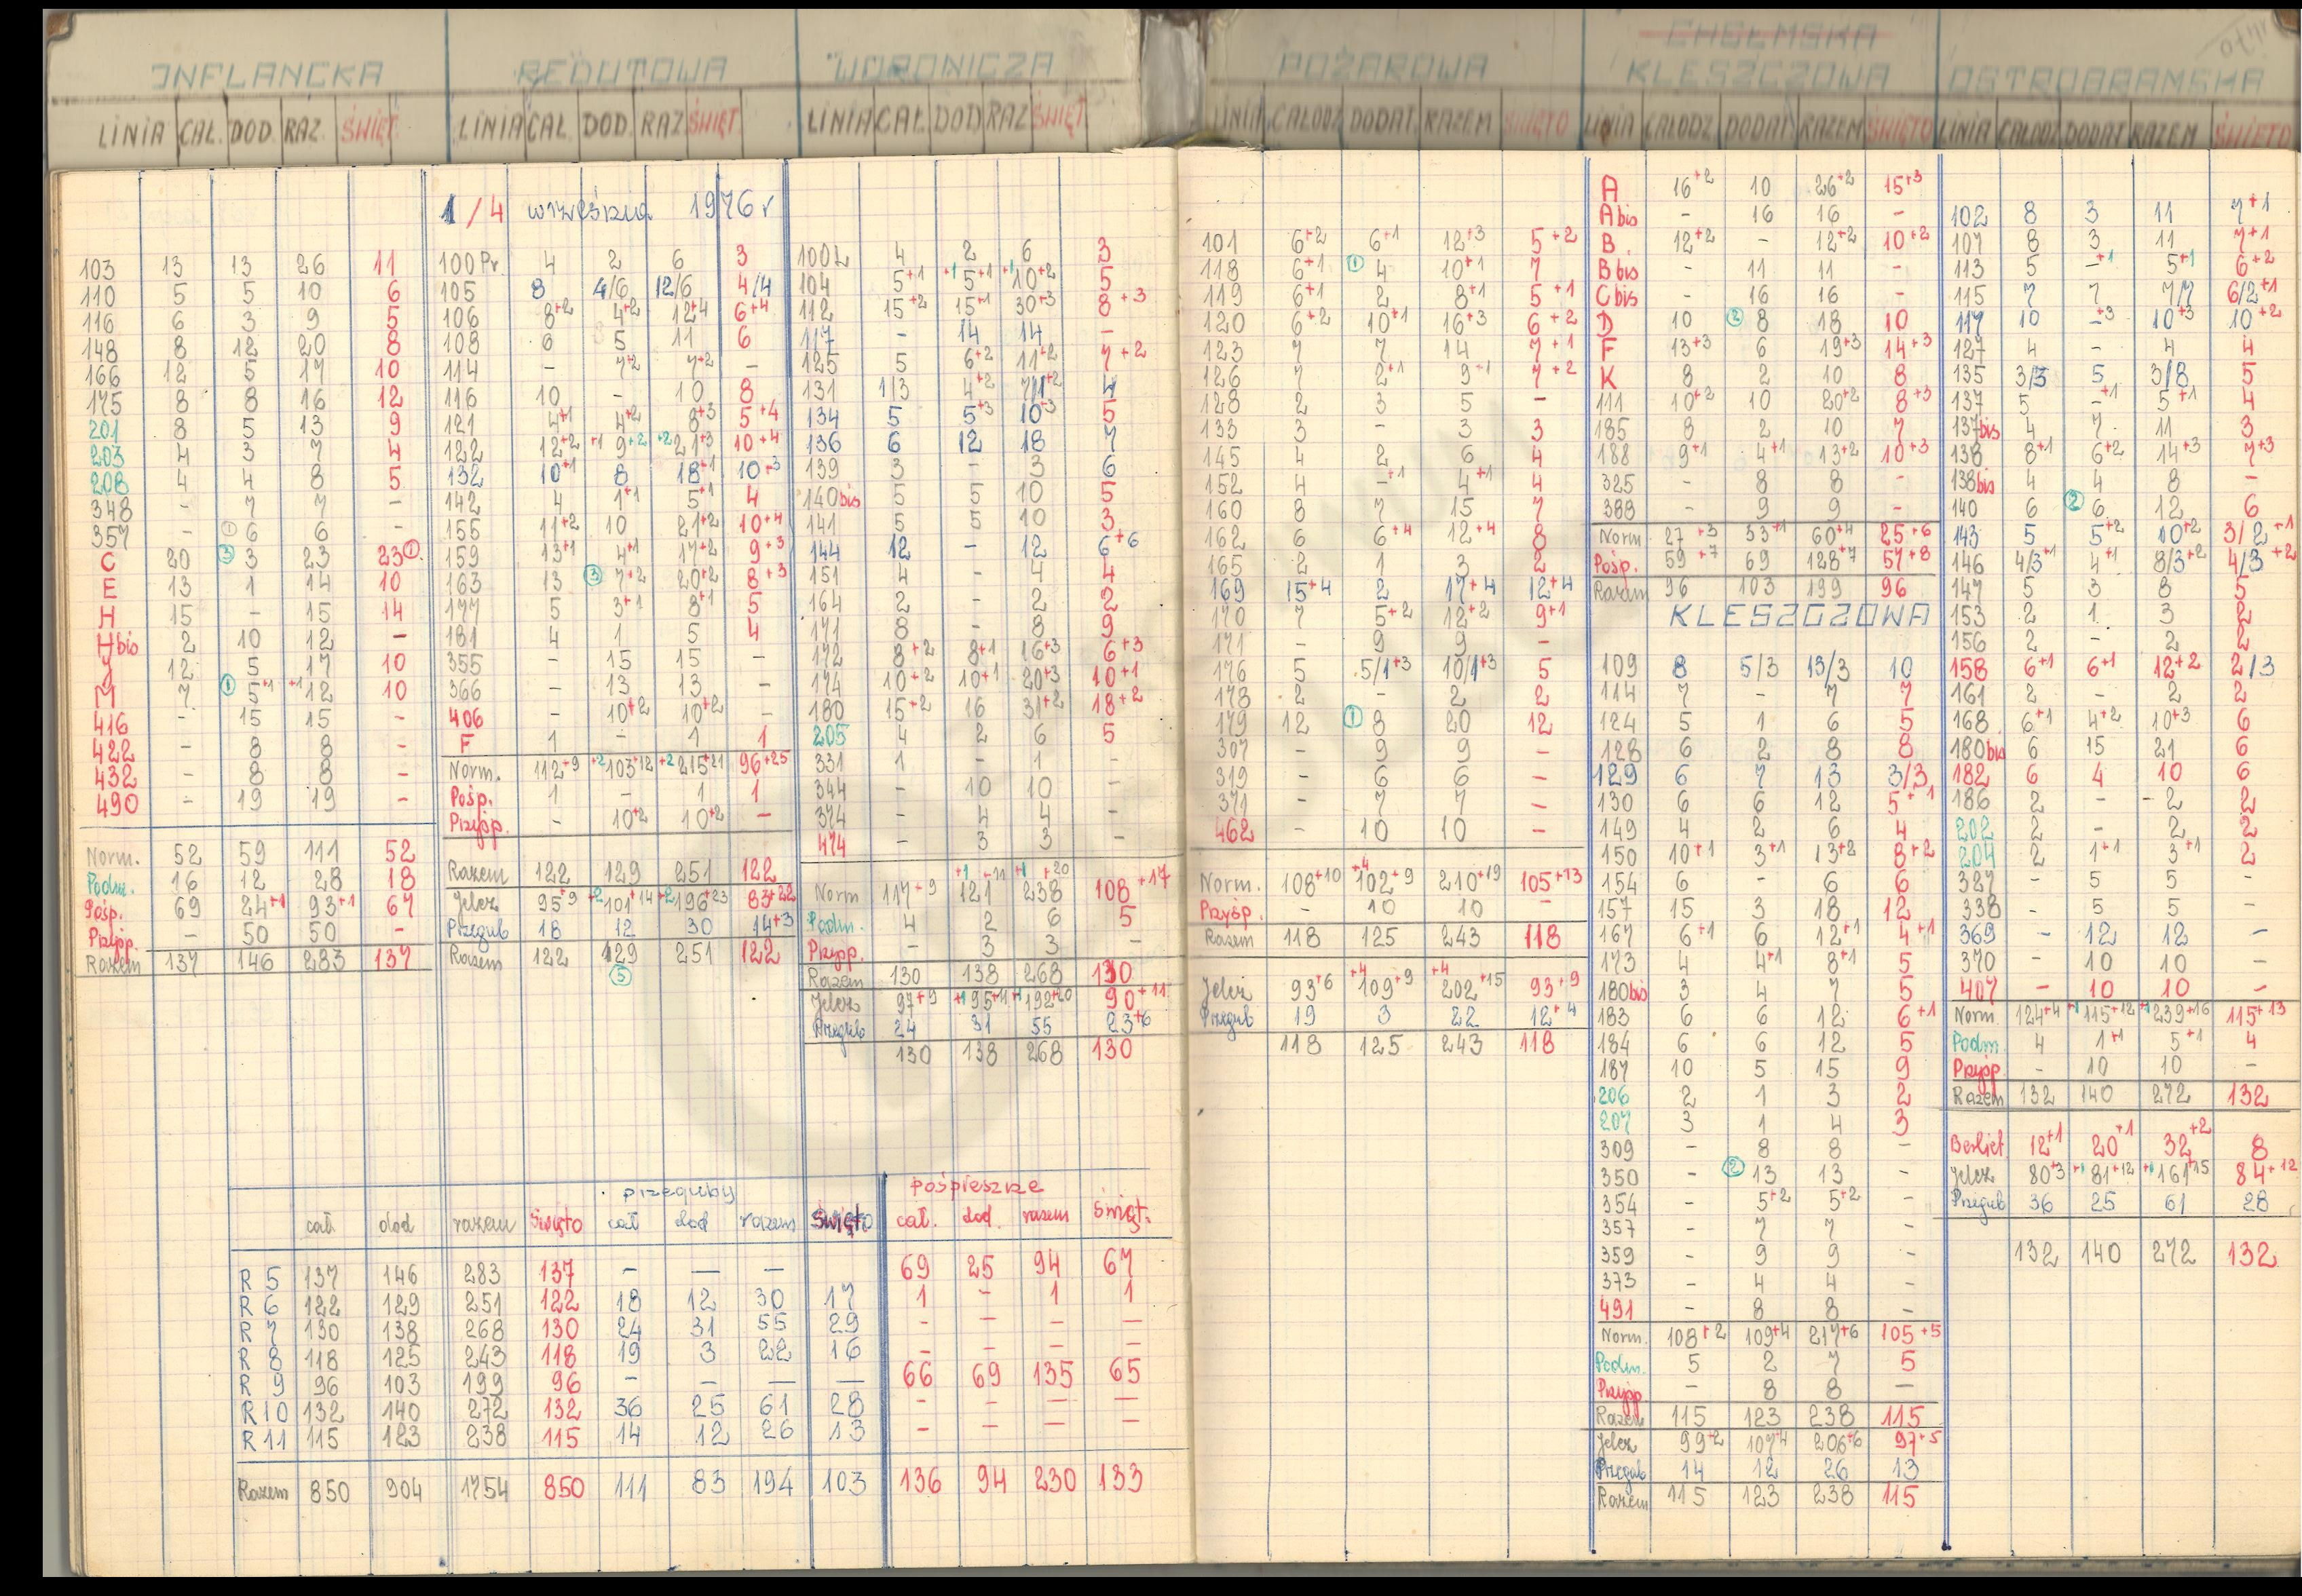 INFLANCKA
LINIA CAŁ. DOD. RAZ. ŚWIĘT.
103 13 13 26 11
110 5 5 10 6
116 6 3 9 5
148 8 12 20 8
166 12 5 17 10
175 8 8 16 12
201 8 5 13 9
203 4 3 7 4
208 4 4 8 5
348 - 7 7 -
357 - ① 6 6 -
C 20 ③ 3 23 23①
E 13 1 14 10
H 15 - 15 14
H bis 2 10 12 -
J 12 5 17 10
M 7 ① 5+1 +1 12 10
416 - 15 15 -
422 - 8 8 -
432 - 8 8 -
490 - 19 19 -
Norm. 52 59 111 52
Podm. 16 12 28 18
Pośp. 69 24+1 93+1 67
Przysp. - 50 50 -
Razem 137 146 283 137
REDUTOWA
LINIA CAŁ. DOD. RAZ. ŚWIĘT.
1/4 września 1976 r
100 Pr. 4 2 6 3
105 8 4/6 12/6 4/4
106 8+2 4+2 12+4 6+4
108 6 5 11 6
114 - 7+2 7+2 -
116 10 - 10 8
121 4+1 4+2 8+3 5+4
122 12+2 +1 9+2 +2 21+3 10+4
132 10+1 8 18+1 10+3
142 4 1+1 5+1 4
155 11+2 10 21+2 10+4
159 13+1 4+1 17+2 9+3
163 13 ③ 7+2 20+2 8+3
177 5 3+1 8+1 5
181 4 1 5 4
355 - 15 15 -
366 - 13 13 -
406 - 10+2 10+2 -
F 1 - 1 1
Norm. 112+9 +2 103+12 +2 215+21 96+25
Pośp. 1 - 1 1
Przysp. - 10+2 10+2 -
Razem 122 129 251 122
Jelcz 95+9 +2 101+14 +2 196+23 83+22
Przegub 18 12 30 14+3
Razem 122 129 251 122
⑤
WORONICZA
LINIA CAŁ. DOD RAZ ŚWIĘT
100 L 4 2 6 3
104 5+1 +1 5+1 +1 10+2 5
112 15+2 15+1 30+3 8+3
117 - 14 14 -
125 5 6+2 11+2 7+2
131 1/3 4+2 7/1+2 4
134 5 5+3 10+3 5
136 6 12 18 7
139 3 - 3 6
140 bis 5 5 10 5
141 5 5 10 3
144 12 - 12 6+6
151 4 - 4 4
164 2 - 2 2
171 8 - 8 9
172 8+2 8+1 16+3 6+3
174 10+2 10+1 20+3 10+1
180 15+2 16 31+2 18+2
205 4 2 6 5
331 1 - 1 -
344 - 10 10 -
374 - 4 4 -
474 - 3 3 -
Norm 117+9 +1 121+11 +1 238+20 108+17
Podm. 4 2 6 5
Przysp. - 3 3 -
Razem 130 138 268 130
Jelcz 97+9 +1 95+11 +1 192+20 90+11
Przegub 24 31 55 23+6
130 138 268 130
przeguby pośpieszne
cał. dod razem Święto cał dod razem Święto cał. dod. razem święt.
R 5 137 146 283 137 - - - 69 25 94 67
R 6 122 129 251 122 18 12 30 17 1 - 1 1
R 7 130 138 268 130 24 31 55 29 - - - -
R 8 118 125 243 118 19 3 22 16 - - - -
R 9 96 103 199 96 - - - - 66 69 135 65
R 10 132 140 272 132 36 25 61 28 - - - -
R 11 115 123 238 115 14 12 26 13 - - - -
Razem 850 904 1754 850 111 83 194 103 136 94 230 133
POŻAROWA
LINIA CAŁODZ DODAT. RAZEM ŚWIĘTO
101 6+2 6+1 12+3 5+2
118 6+1 ① 4 10+1 7
119 6+1 2 8+1 5+1
120 6+2 10+1 16+3 6+2
123 7 7 14 7+1
126 7 2+1 9+1 7+2
128 2 3 5 -
133 3 - 3 3
145 4 2 6 4
152 4 -+1 4+1 4
160 8 7 15 7
162 6 6+4 12+4 8
165 2 1 3 2
169 15+4 2 17+4 12+4
170 7 5+2 12+2 9+1
171 - 9 9 -
176 5 5/1+3 10/1+3 5
178 2 - 2 2
179 12 ① 8 20 12
307 - 9 9 -
319 - 6 6 -
371 - 7 7 -
462 - 10 10 -
Norm. 108+10 +4 102+9 210+19 105+13
Przysp. - 10 10 -
Razem 118 125 243 118
Jelcz 93+6 +4 109+9 +4 202+15 93+9
Przegub 19 3 22 12+4
118 125 243 118
CHEŁMSKA
KLESZCZOWA
LINIA CAŁODZ DODAT RAZEM ŚWIĘTO
A 16+2 10 26+2 15+3
A bis - 16 16 -
B. 12+2 - 12+2 10+2
B bis - 11 11 -
C bis - 16 16 -
D 10 ② 8 18 10
F 13+3 6 19+3 14+3
K 8 2 10 8
111 10+2 10 20+2 8+3
185 8 2 10 7
188 9+1 4+1 13+2 10+3
325 - 8 8 -
388 - 9 9 -
Norm 27+3 33+1 60+4 25+6
Pośp. 59+7 69 128+7 57+8
Razem 96 103 199 96
KLESZCZOWA
109 8 5/3 13/3 10
114 7 - 7 7
124 5 1 6 5
128 6 2 8 8
129 6 7 13 3/3
130 6 6 12 5+1
149 4 2 6 4
150 10+1 3+1 13+2 8+2
154 6 - 6 6
157 15 3 18 12
167 6+1 6 12+1 4+1
173 4 4+1 8+1 5
180 bis 3 4 7 5
183 6 6 12 6+1
184 6 6 12 5
187 10 5 15 9
206 2 1 3 2
207 3 1 4 3
309 - 8 8 -
350 - ② 13 13 -
354 - 5+2 5+2 -
357 - 7 7 -
359 - 9 9 -
373 - 4 4 -
491 - 8 8 -
Norm. 108+2 109+4 217+6 105+5
Podm. 5 2 7 5
Przysp - 8 8 -
Razem 115 123 238 115
Jelcz 99+2 107+4 206+6 97+5
Przegub 14 12 26 13
Razem 115 123 238 115
OSTROBRAMSKA
LINIA CAŁODZ DODAT RAZEM ŚWIĘTO
102 8 3 11 7+1
107 8 3 11 7+1
113 5 -+1 5+1 6+2
115 7 7 7/7 6/2+1
117 10 -+3 10+3 10+2
127 4 - 4 4
135 3/3 5 3/8 5
137 5 -+1 5+1 4
137 bis 4 7 11 3
138 8+1 6+2 14+3 7+3
138 bis 4 4 8 -
140 6 ② 6 12 6
143 5 5+2 10+2 3/2+1
146 4/3+1 4+1 8/3+2 4/3+2
147 5 3 8 5
153 2 1 3 2
156 2 - 2 2
158 6+1 6+1 12+2 2/3
161 2 - 2 2
168 6+1 4+2 10+3 6
180 bis 6 15 21 6
182 6 4 10 6
186 2 - 2 2
202 2 - 2 2
204 2 1+1 3+1 2
327 - 5 5 -
338 - 5 5 -
369 - 12 12 -
370 - 10 10 -
407 - 10 10 -
Norm 124+4 +1 115+12 +1 239+16 115+13
Podm 4 1+1 5+1 4
Przysp - 10 10 -
Razem 132 140 272 132
Berliet 12+1 20+1 32+2 8
Jelcz 80+3 +1 81+12 +1 161+15 84+12
Przegub 36 25 61 28
132 140 272 132